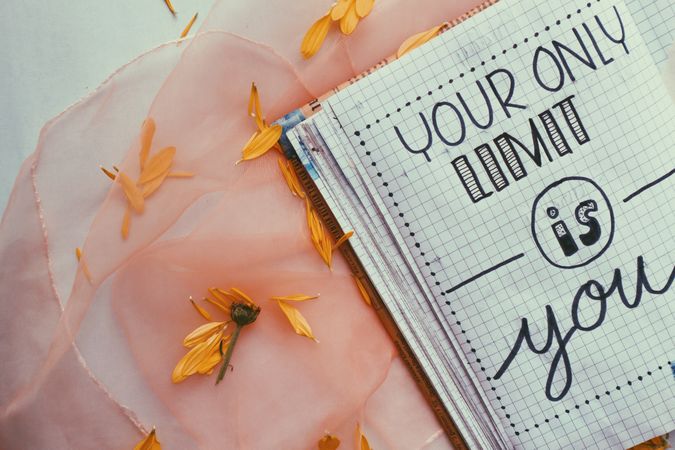 YOUR ONLY
LIMIT
is
you